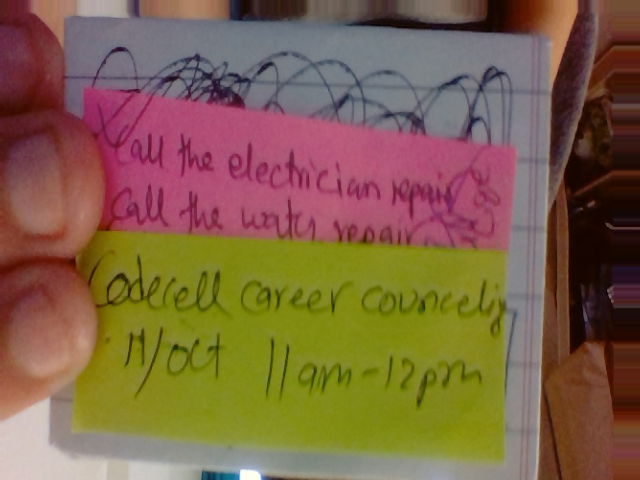 Call the electrician repair
Call the water repair
Codecell career counceling
11am-12pm